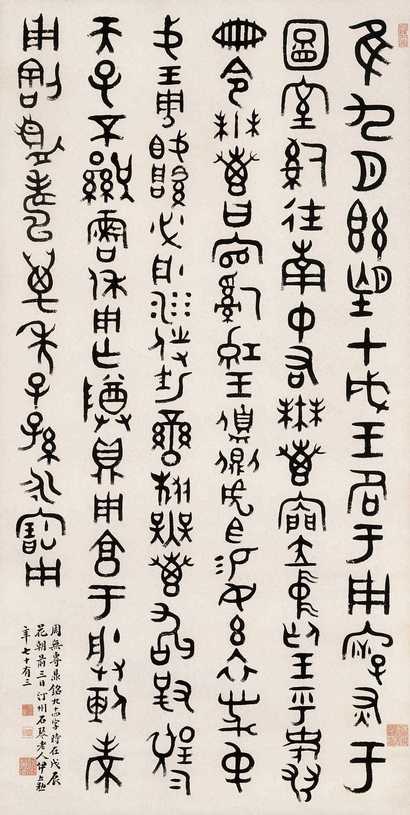 隹九月既望甲戌王各于周廟于
圖室嗣徒南中右無專內門立中廷王乎史
冊令無專曰官嗣紅王側虎臣易女玄衣黹屯
戈琱縞必彤沙攸勒䜌旂無專敢對揚
天子不顯魯休用乍尊鼎用享于朕剌考
用割眉壽萬年子孫永寶用
周無專鼎銘九十四字時在戊辰
花朝前三日汀州石琴老人伊立勳
年七十有三